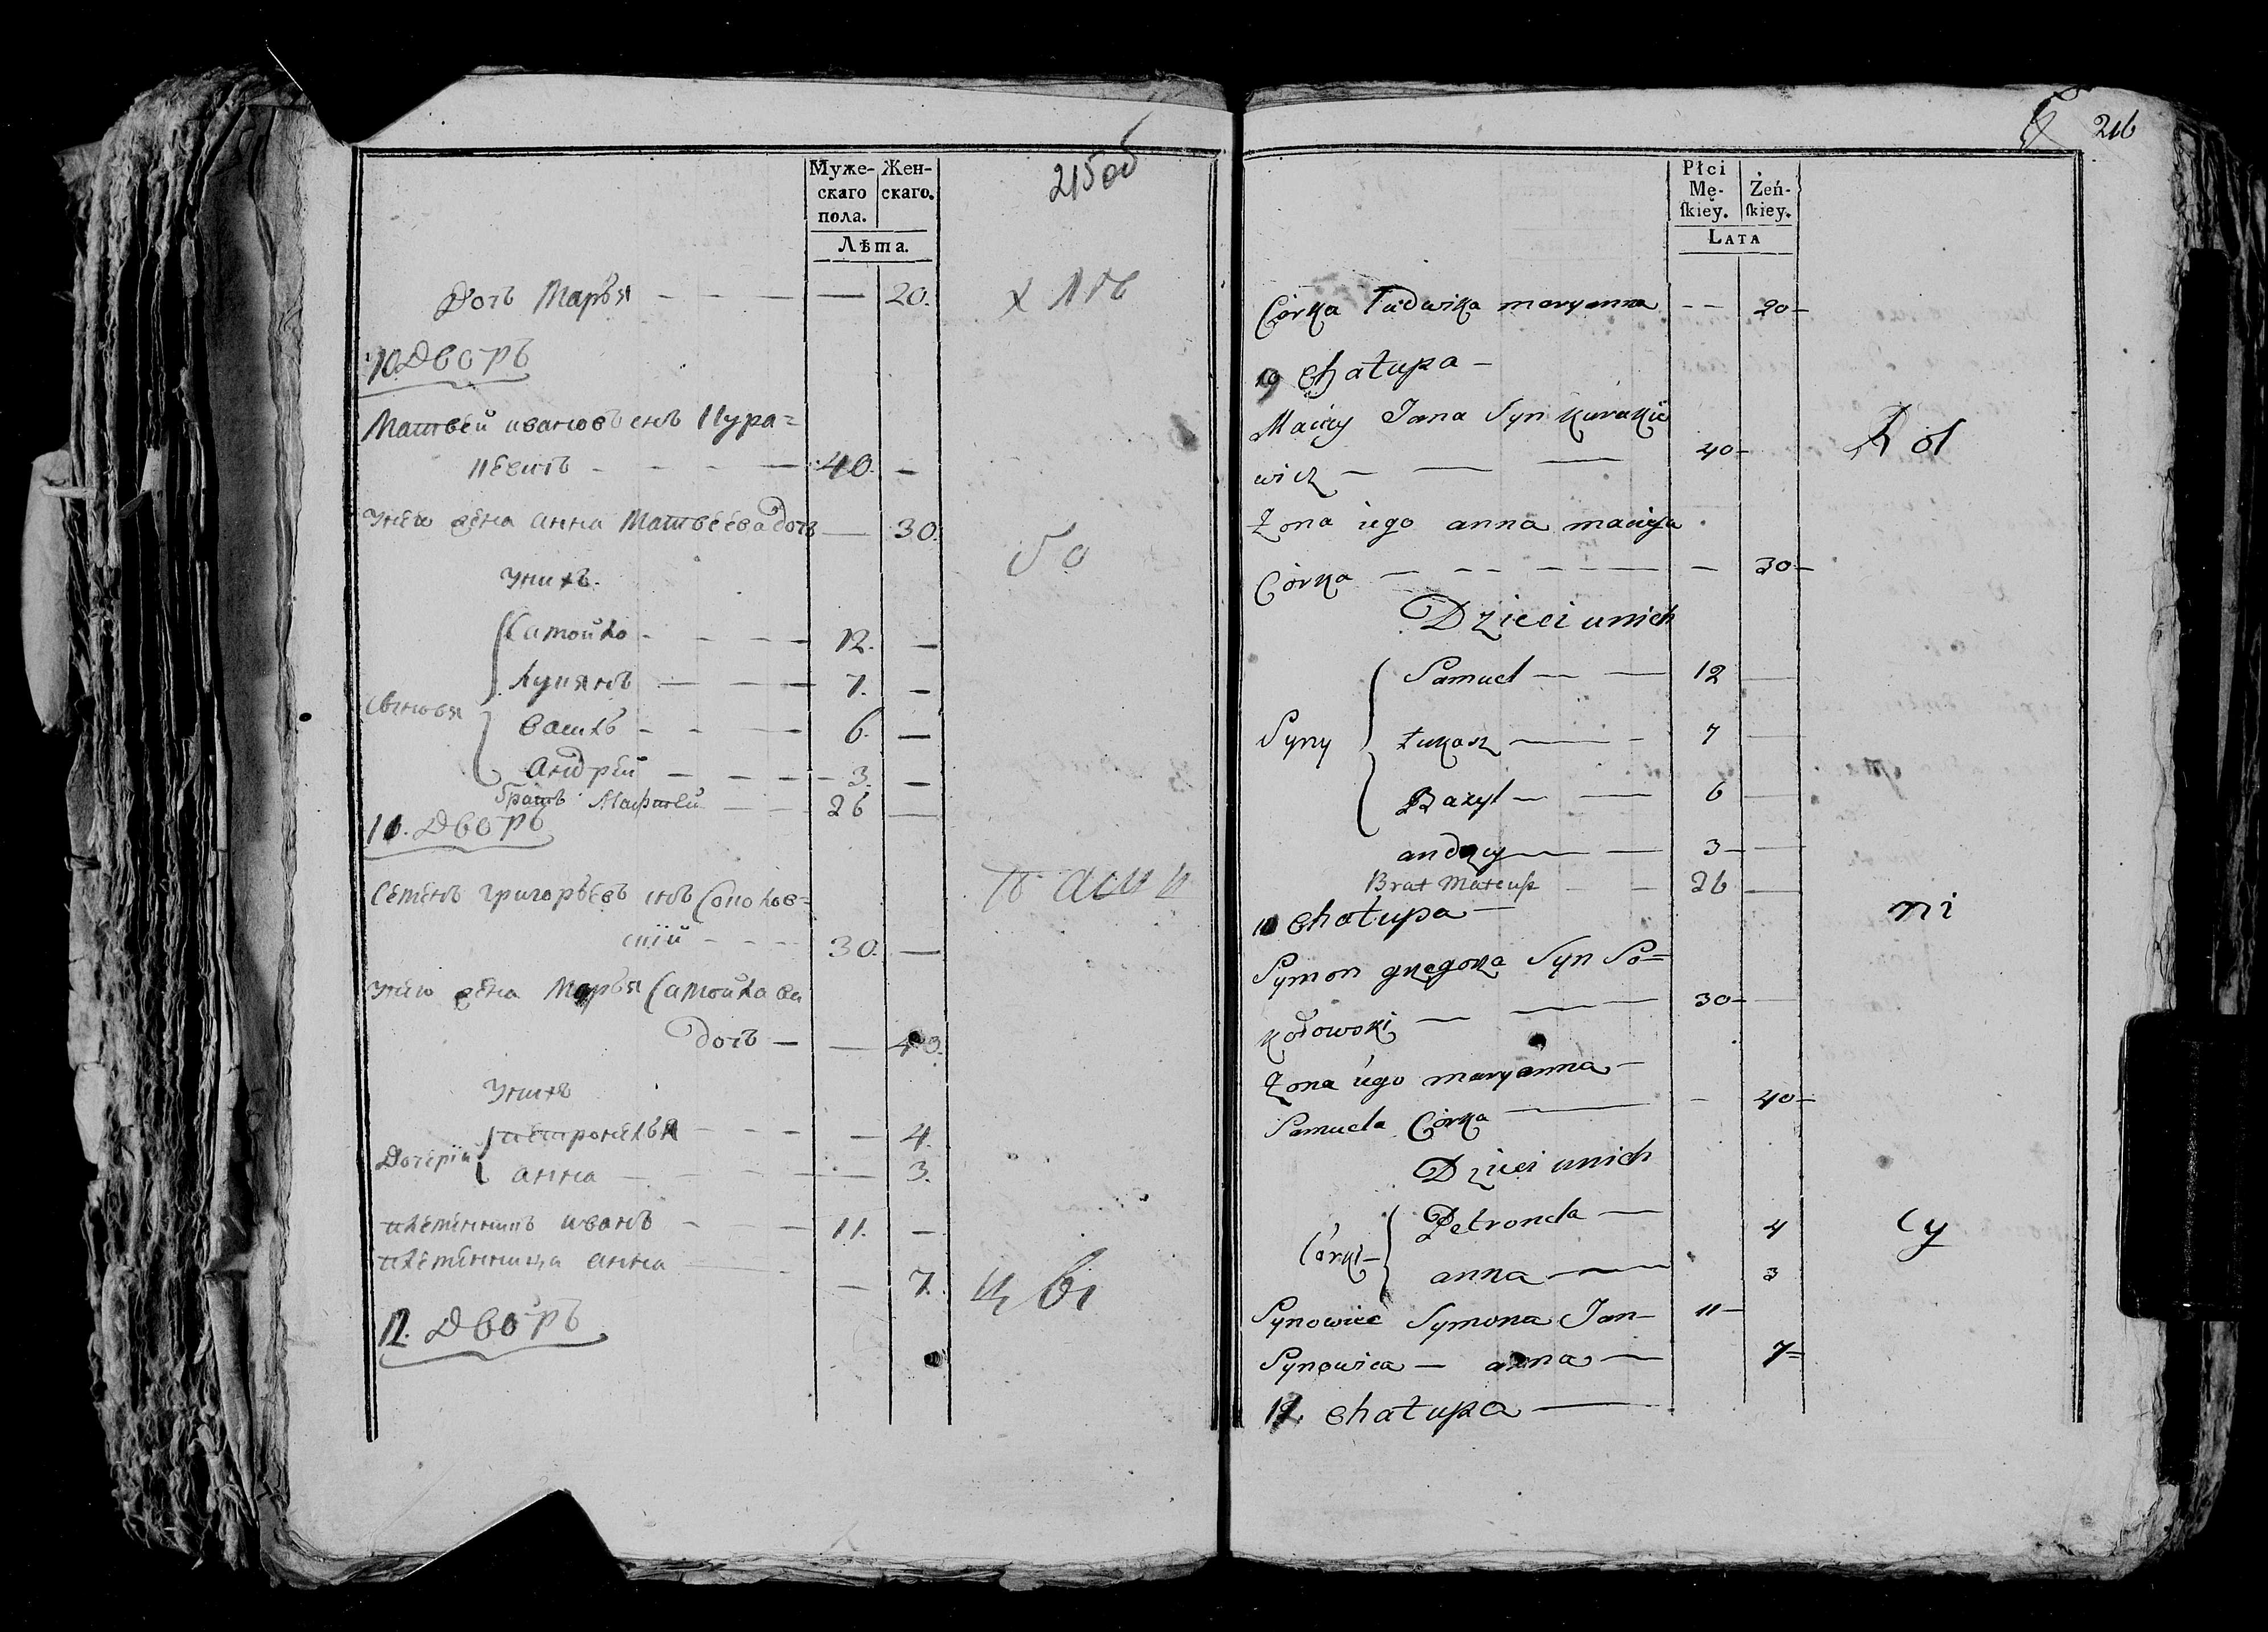 215об
Муже-
скаго
пола.
Жен-
скаго.
Лѣта.
Дочь Марья — 20.
10. Дворъ
Матвей ивановъ снъ Кура=
кевичъ — 40. —
У нево жена анна Матвеева дочь — 30.
У нихъ.
Самойло — 12. —
Лукянъ — 7. —
Сыновья
Василь — 6. —
Андрей — 3. —
братъ 26 —
11. Дворъ
Семенъ григорьевъ снъ Соколов=
скій — 30. —
У нево жена Марья Самойлова
дочь — — 40.
У нихъ
Дочери
Петронелья — 4.
анна — 3.
племянникъ иванъ — 11. —
племянница анна — 7.
12. Дворъ
216
Płci
Mę-
ſkiey.
Żeń-
ſkiey.
LATA
Córka Ludwika maryanna — 20 —
10 Chałupa —
Maciey Jana Syn Kurakie
wicz — 40 —
Żona iego anna macieja
Córka — 30 —
Dzieci u nich
Samuel — 12
Syny
Łukasz — 7
Bazyl — 6
andrzey — 3 —
Brat Mateusz — 26
11 Chałupa —
Symon grzegorza Syn So=
kołowski — 30 —
Żona iego maryanna —
Samuela Córka — 40 —
Dzieci u nich
Córki —
Petronela — 4
anna — 3
Synowiec Symona Jan — 11 —
Synowica — anna — 7 =
12 Chałupa —
ni
cy